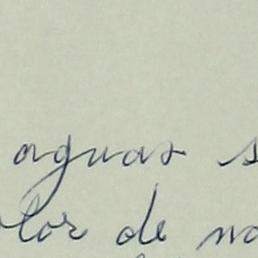 aguas s
olor de no